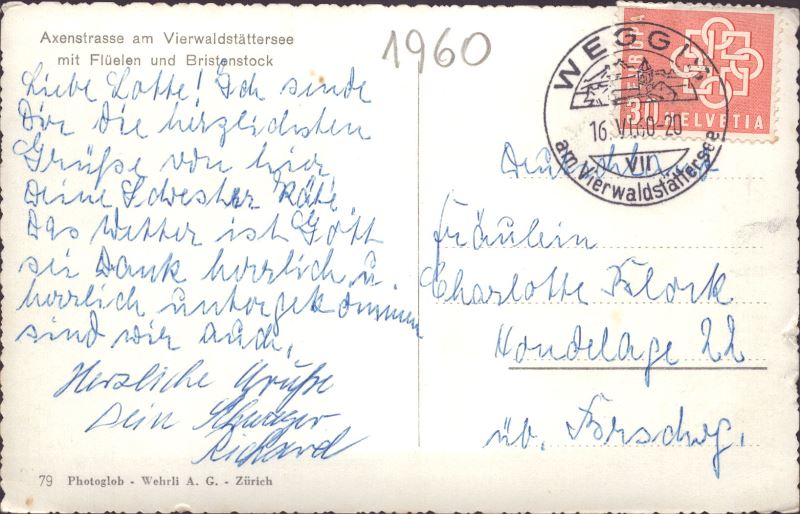 Axenstrasse am Vierwaldstättersee
mit Flüelen und Bristenstock
1960
Liebe Lotte! Ich sende
Dir die herzlichsten
Grüße von hier
Deine Schwester Käte.
Das Wetter ist Gott
sei Dank herrlich u.
herrlich untergekommen
sind wir auch.
Herzliche Grüße
Dein Schwager
Richard
79 Photoglob - Wehrli A. G. - Zürich
WEGGIS
16.VI.60-20
VII
am Vierwaldstättersee
EUROPA
30 HELVETIA
Deutschland
Fräulein
Charlotte Block
Hondelage 22
üb. Brschwg.